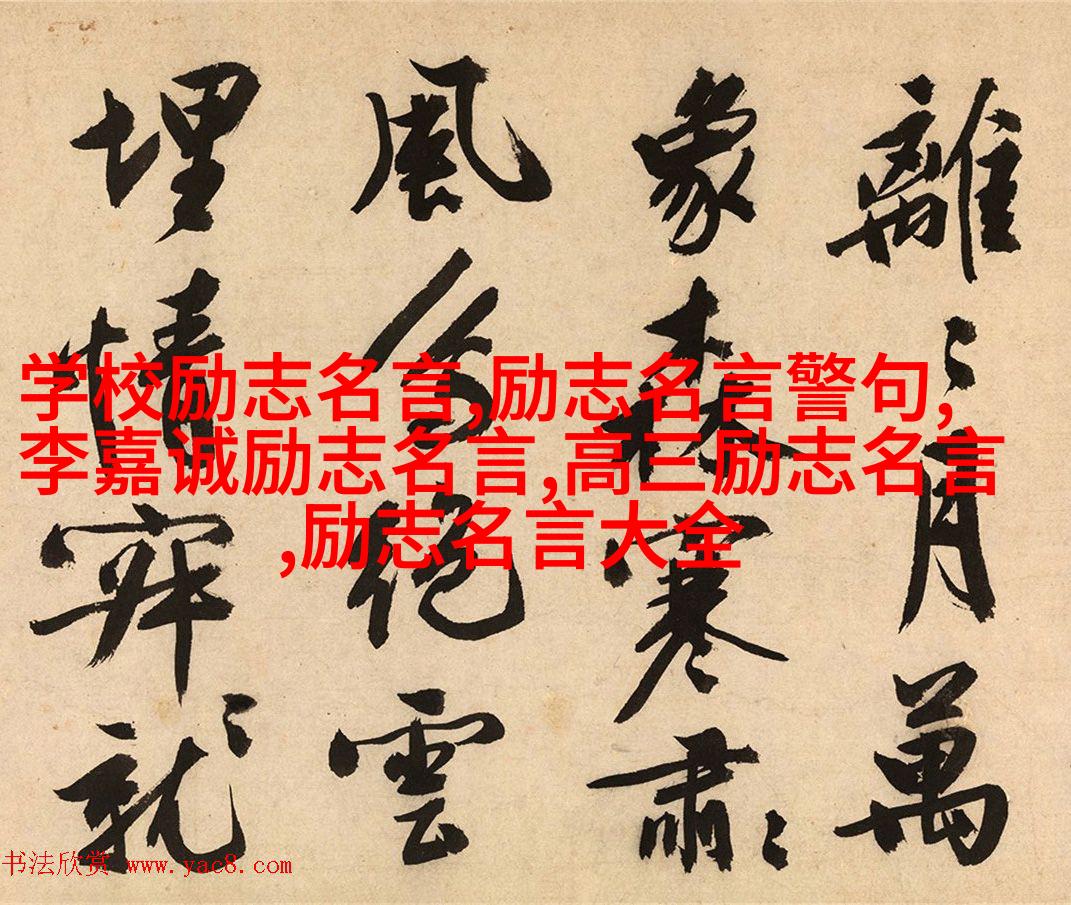 離〻月萬
象森寒肅〻
風絕雲
埋情牢〻就
学校励志名言,励志名言警句,
李嘉诚励志名言,高三励志名言
,励志名言大全
书法欣赏 www.yac8.com